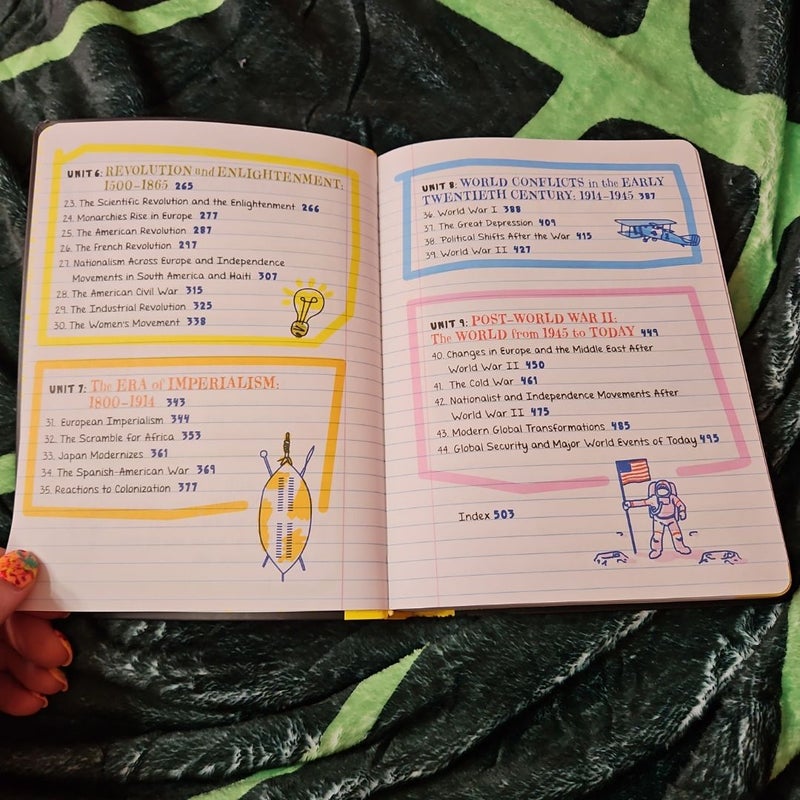 UNIT 6: REVOLUTION and ENLIGHTENMENT:
1500–1865 265
23. The Scientific Revolution and the Enlightenment 266
24. Monarchies Rise in Europe 277
25. The American Revolution 287
26. The French Revolution 297
27. Nationalism Across Europe and Independence
Movements in South America and Haiti 307
28. The American Civil War 315
29. The Industrial Revolution 325
30. The Women's Movement 338
UNIT 7: The ERA of IMPERIALISM:
1800–1914 343
31. European Imperialism 344
32. The Scramble for Africa 353
33. Japan Modernizes 361
34. The Spanish-American War 369
35. Reactions to Colonization 377
UNIT 8: WORLD CONFLICTS in the EARLY
TWENTIETH CENTURY: 1914–1945 387
36. World War I 388
37. The Great Depression 409
38. Political Shifts After the War 415
39. World War II 427
UNIT 9: POST–WORLD WAR II:
The WORLD from 1945 to TODAY 449
40. Changes in Europe and the Middle East After
World War II 450
41. The Cold War 461
42. Nationalist and Independence Movements After
World War II 475
43. Modern Global Transformations 485
44. Global Security and Major World Events of Today 495
Index 503